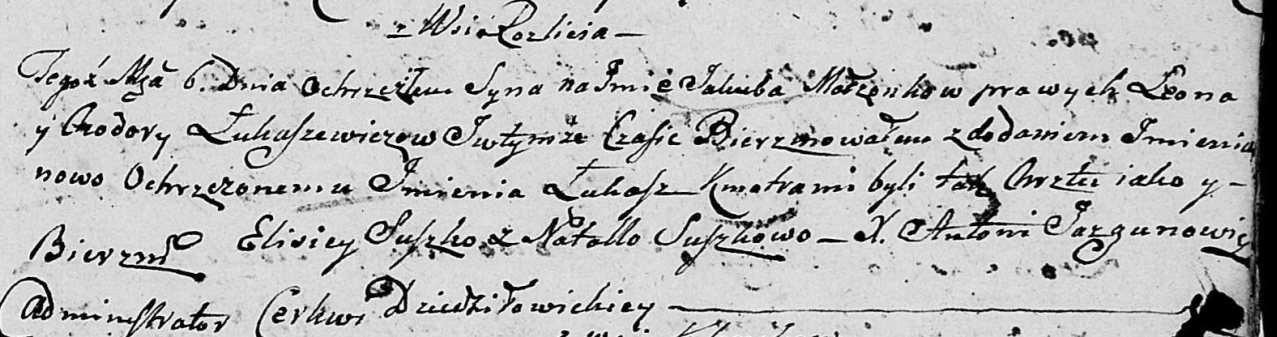 z Wsi Rozlicia —
Tegoż Mscā 6. Dnia Ochrzciłem Syna na Imie Jakuba Małżonkow prawych Leona
y Chodory Łukaszewiczow Iwtymże Czasie Bierzmowałem z dodaniem Imienia
nowo Ochrzczonemu Imienia Łukasz Kmotrami byli tak Chrztu iako y –
Bierzmō Elisiey Suszko z Natallo Suszkowo — X. Antoni Jazgunowicz
Administrator Cerkwi Dziedziłowickiey —